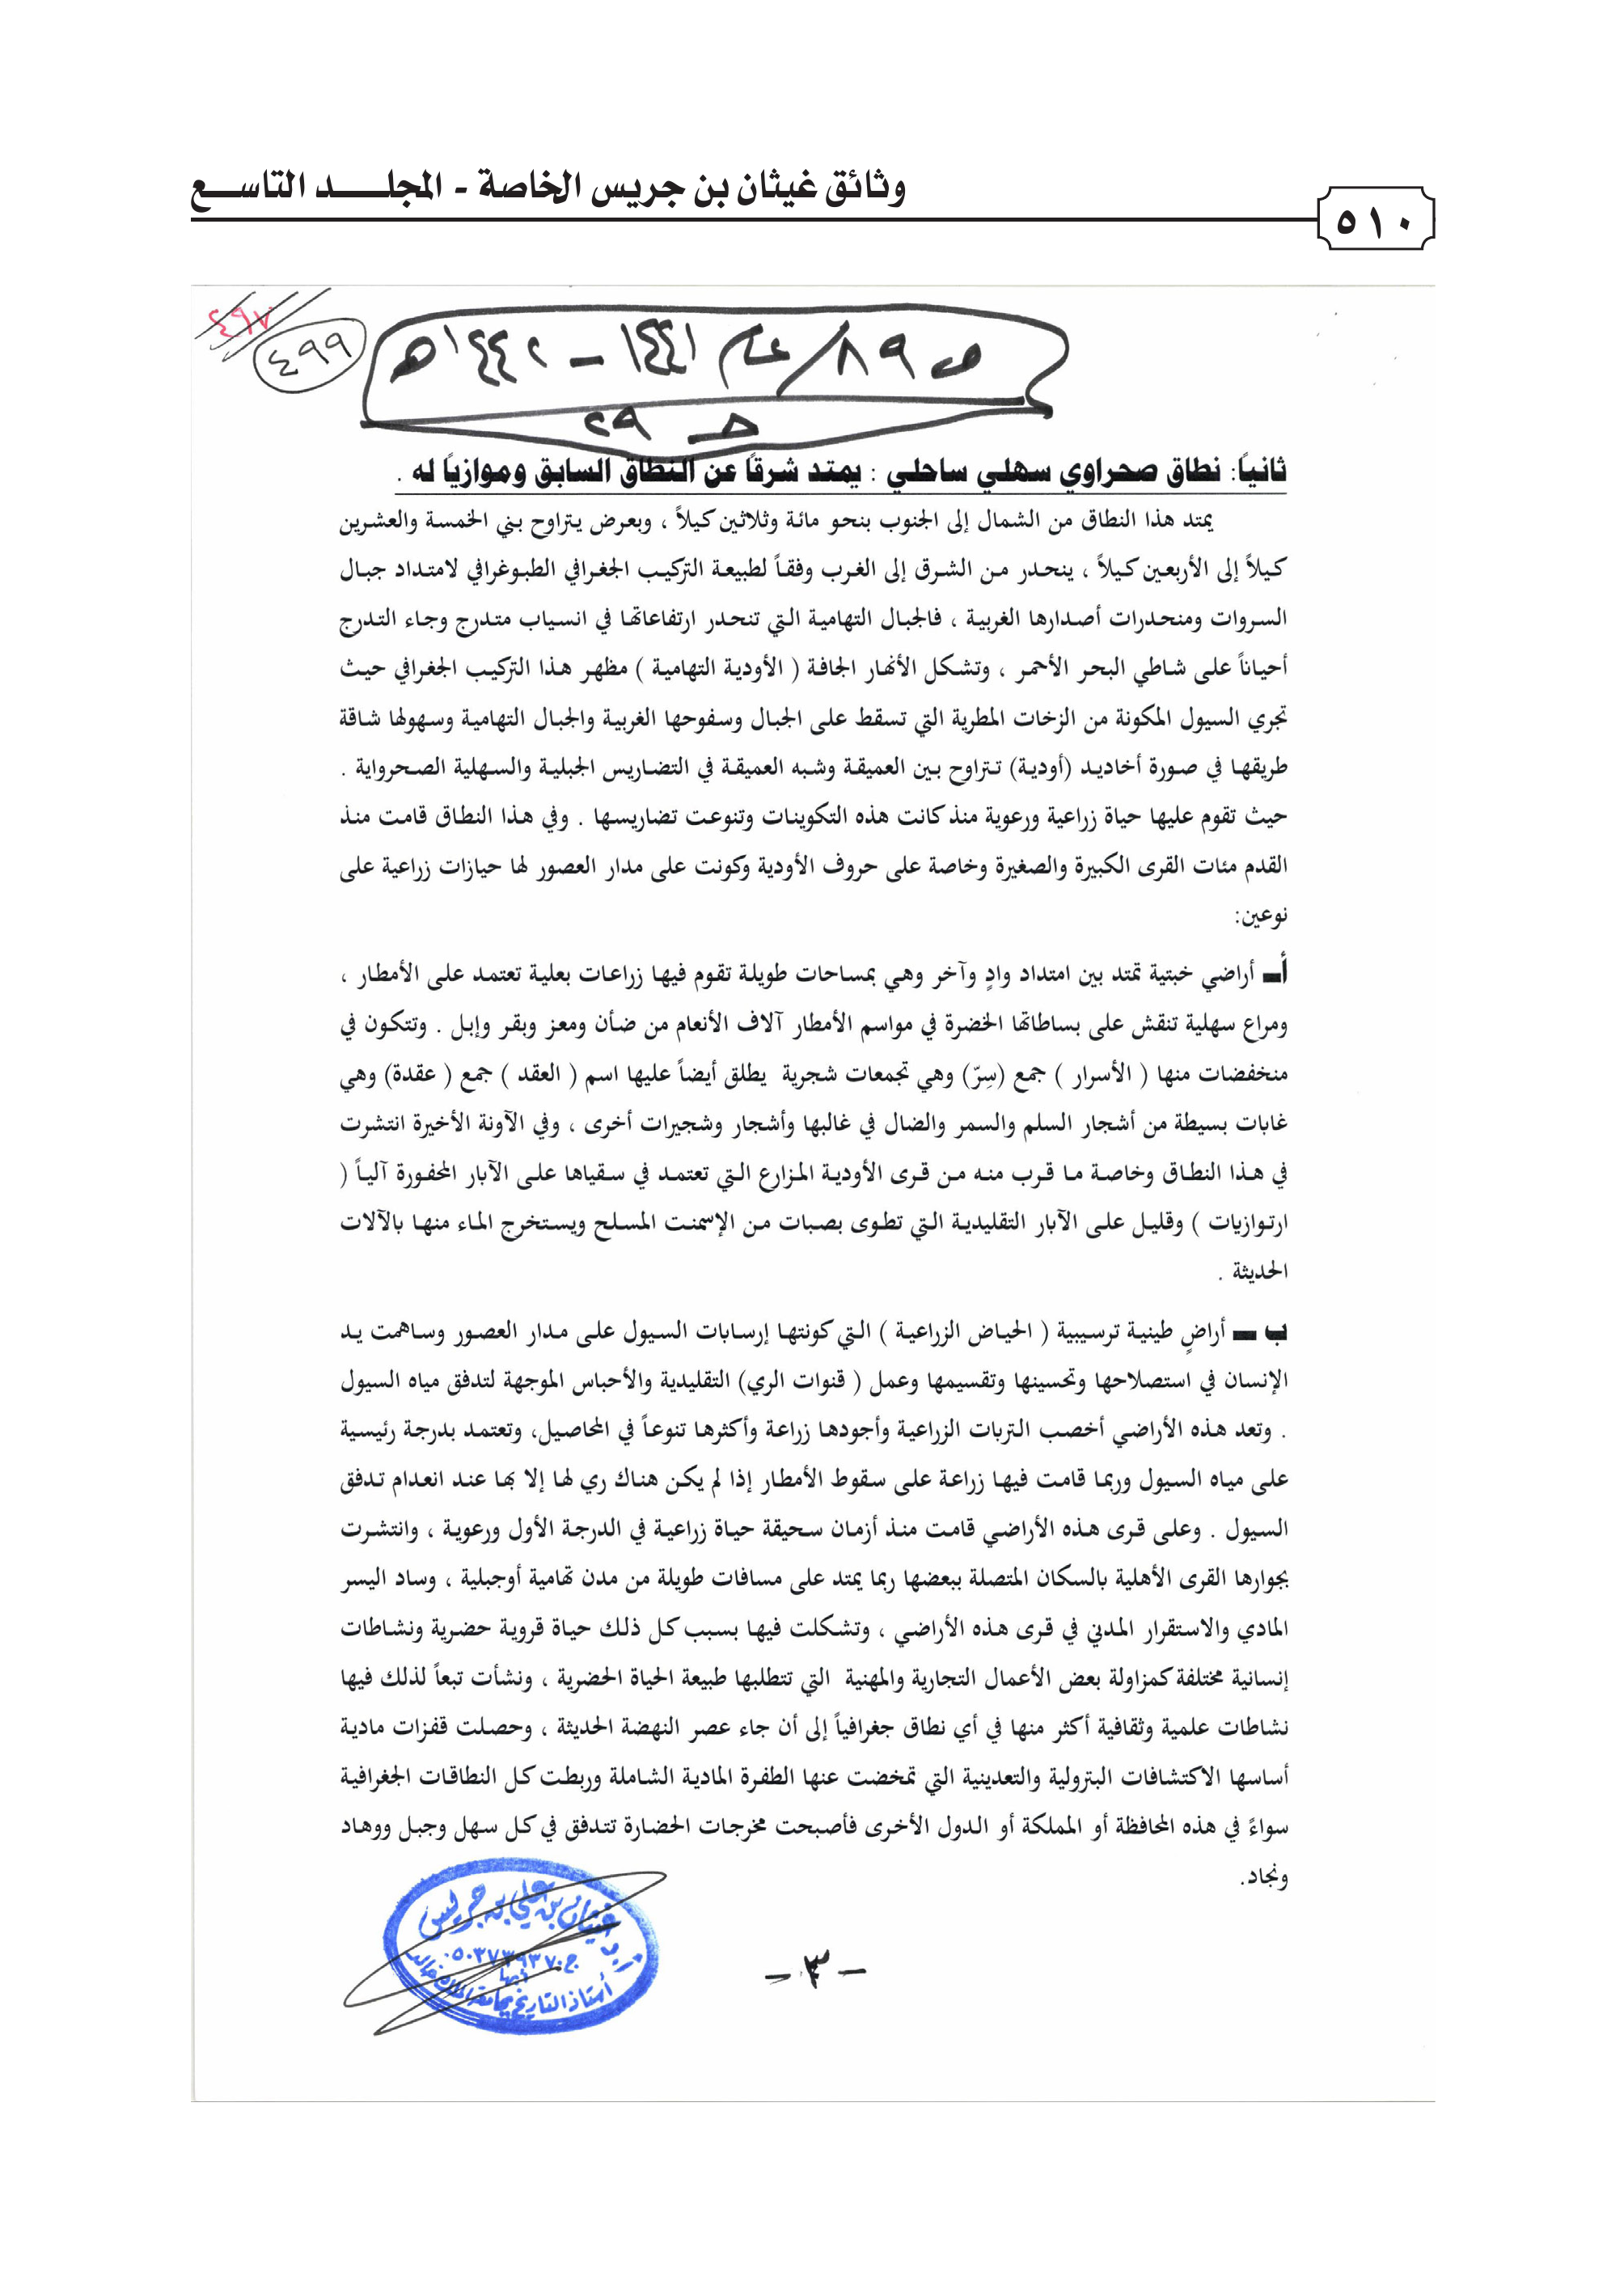 وثائق غيثان بن جريس الخاصة - المجلـــــد التاســـع
٥١٠
٤٩٧
٤٩٩
ص ٨٩/ عام ١٤٤١ – ١٤٤٢هـ
حـ ٢٩
ثانياً: نطاق صحراوي سهلي ساحلي : يمتد شرقاً عن النطاق السابق وموازياً له .
يمتد هذا النطاق من الشمال إلى الجنوب بنحو مائة وثلاثين كيلاً ، وبعرض يتراوح بني الخمسة والعشرين
كيلاً إلى الأربعين كيلاً ، ينحدر من الشرق إلى الغرب وفقاً لطبيعة التركيب الجغرافي الطبوغرافي لامتداد جبال
السروات ومنحدرات أصدارها الغربية ، فالجبال التهامية التي تنحدر ارتفاعاتها في انسياب متدرج وجاء التدرج
أحياناً على شاطي البحر الأحمر ، وتشكل الأنهار الجافة ( الأودية التهامية ) مظهر هذا التركيب الجغرافي حيث
تجري السيول المكونة من الزخات المطرية التي تسقط على الجبال وسفوحها الغربية والجبال التهامية وسهولها شاقة
طريقها في صورة أخاديد (أودية) تتراوح بين العميقة وشبه العميقة في التضاريس الجبلية والسهلية الصحرواية .
حيث تقوم عليها حياة زراعية ورعوية منذ كانت هذه التكوينات وتنوعت تضاريسها . وفي هذا النطاق قامت منذ
القدم مئات القرى الكبيرة والصغيرة وخاصة على حروف الأودية وكونت على مدار العصور لها حيازات زراعية على
نوعين:
أ – أراضي خبتية تمتد بين امتداد وادٍ وآخر وهي بمساحات طويلة تقوم فيها زراعات بعلية تعتمد على الأمطار ،
ومراع سهلية تنقش على بساطاتها الخضرة في مواسم الأمطار آلاف الأنعام من ضأن ومعز وبقر وإبل . وتتكون في
منخفضات منها ( الأسرار ) جمع (سِرّ) وهي تجمعات شجرية يطلق أيضاً عليها اسم ( العقد ) جمع ( عقدة) وهي
غابات بسيطة من أشجار السلم والسمر والضال في غالبها وأشجار وشجيرات أخرى ، وفي الآونة الأخيرة انتشرت
في هذا النطاق وخاصة ما قرب منه من قرى الأودية المزارع التي تعتمد في سقياها على الآبار المحفورة آلياً (
ارتوازيات ) وقليل على الآبار التقليدية التي تطوى بصبات من الإسمنت المسلح ويستخرج الماء منها بالآلات
الحديثة .
ب – أراضٍ طينية ترسيبية ( الحياض الزراعية ) التي كونتها إرسابات السيول على مدار العصور وساهمت يد
الإنسان في استصلاحها وتحسينها وتقسيمها وعمل ( قنوات الري) التقليدية والأحباس الموجهة لتدفق مياه السيول
. وتعد هذه الأراضي أخصب التربات الزراعية وأجودها زراعة وأكثرها تنوعاً في المحاصيل، وتعتمد بدرجة رئيسية
على مياه السيول وربما قامت فيها زراعة على سقوط الأمطار إذا لم يكن هناك ري لها إلا بها عند انعدام تدفق
السيول . وعلى قرى هذه الأراضي قامت منذ أزمان سحيقة حياة زراعية في الدرجة الأول ورعوية ، وانتشرت
بجوارها القرى الأهلية بالسكان المتصلة ببعضها ربما يمتد على مسافات طويلة من مدن تهامية أوجبلية ، وساد اليسر
المادي والاستقرار المدني في قرى هذه الأراضي ، وتشكلت فيها بسبب كل ذلك حياة قروية حضرية ونشاطات
إنسانية مختلفة كمزاولة بعض الأعمال التجارية والمهنية التي تتطلبها طبيعة الحياة الحضرية ، ونشأت تبعاً لذلك فيها
نشاطات علمية وثقافية أكثر منها في أي نطاق جغرافياً إلى أن جاء عصر النهضة الحديثة ، وحصلت قفزات مادية
أساسها الاكتشافات البترولية والتعدينية التي تمخضت عنها الطفرة المادية الشاملة وربطت كل النطاقات الجغرافية
سواءً في هذه المحافظة أو المملكة أو الدول الأخرى فأصبحت مخرجات الحضارة تتدفق في كل سهل وجبل ووهاد
ونجاد.
أ.د. غيثان بن علي بن جريس
ج.٠٥٠٣٧٣٩٣٧٠
أبها
أستاذ التاريخ بجامعة الملك خالد
– ٣ –